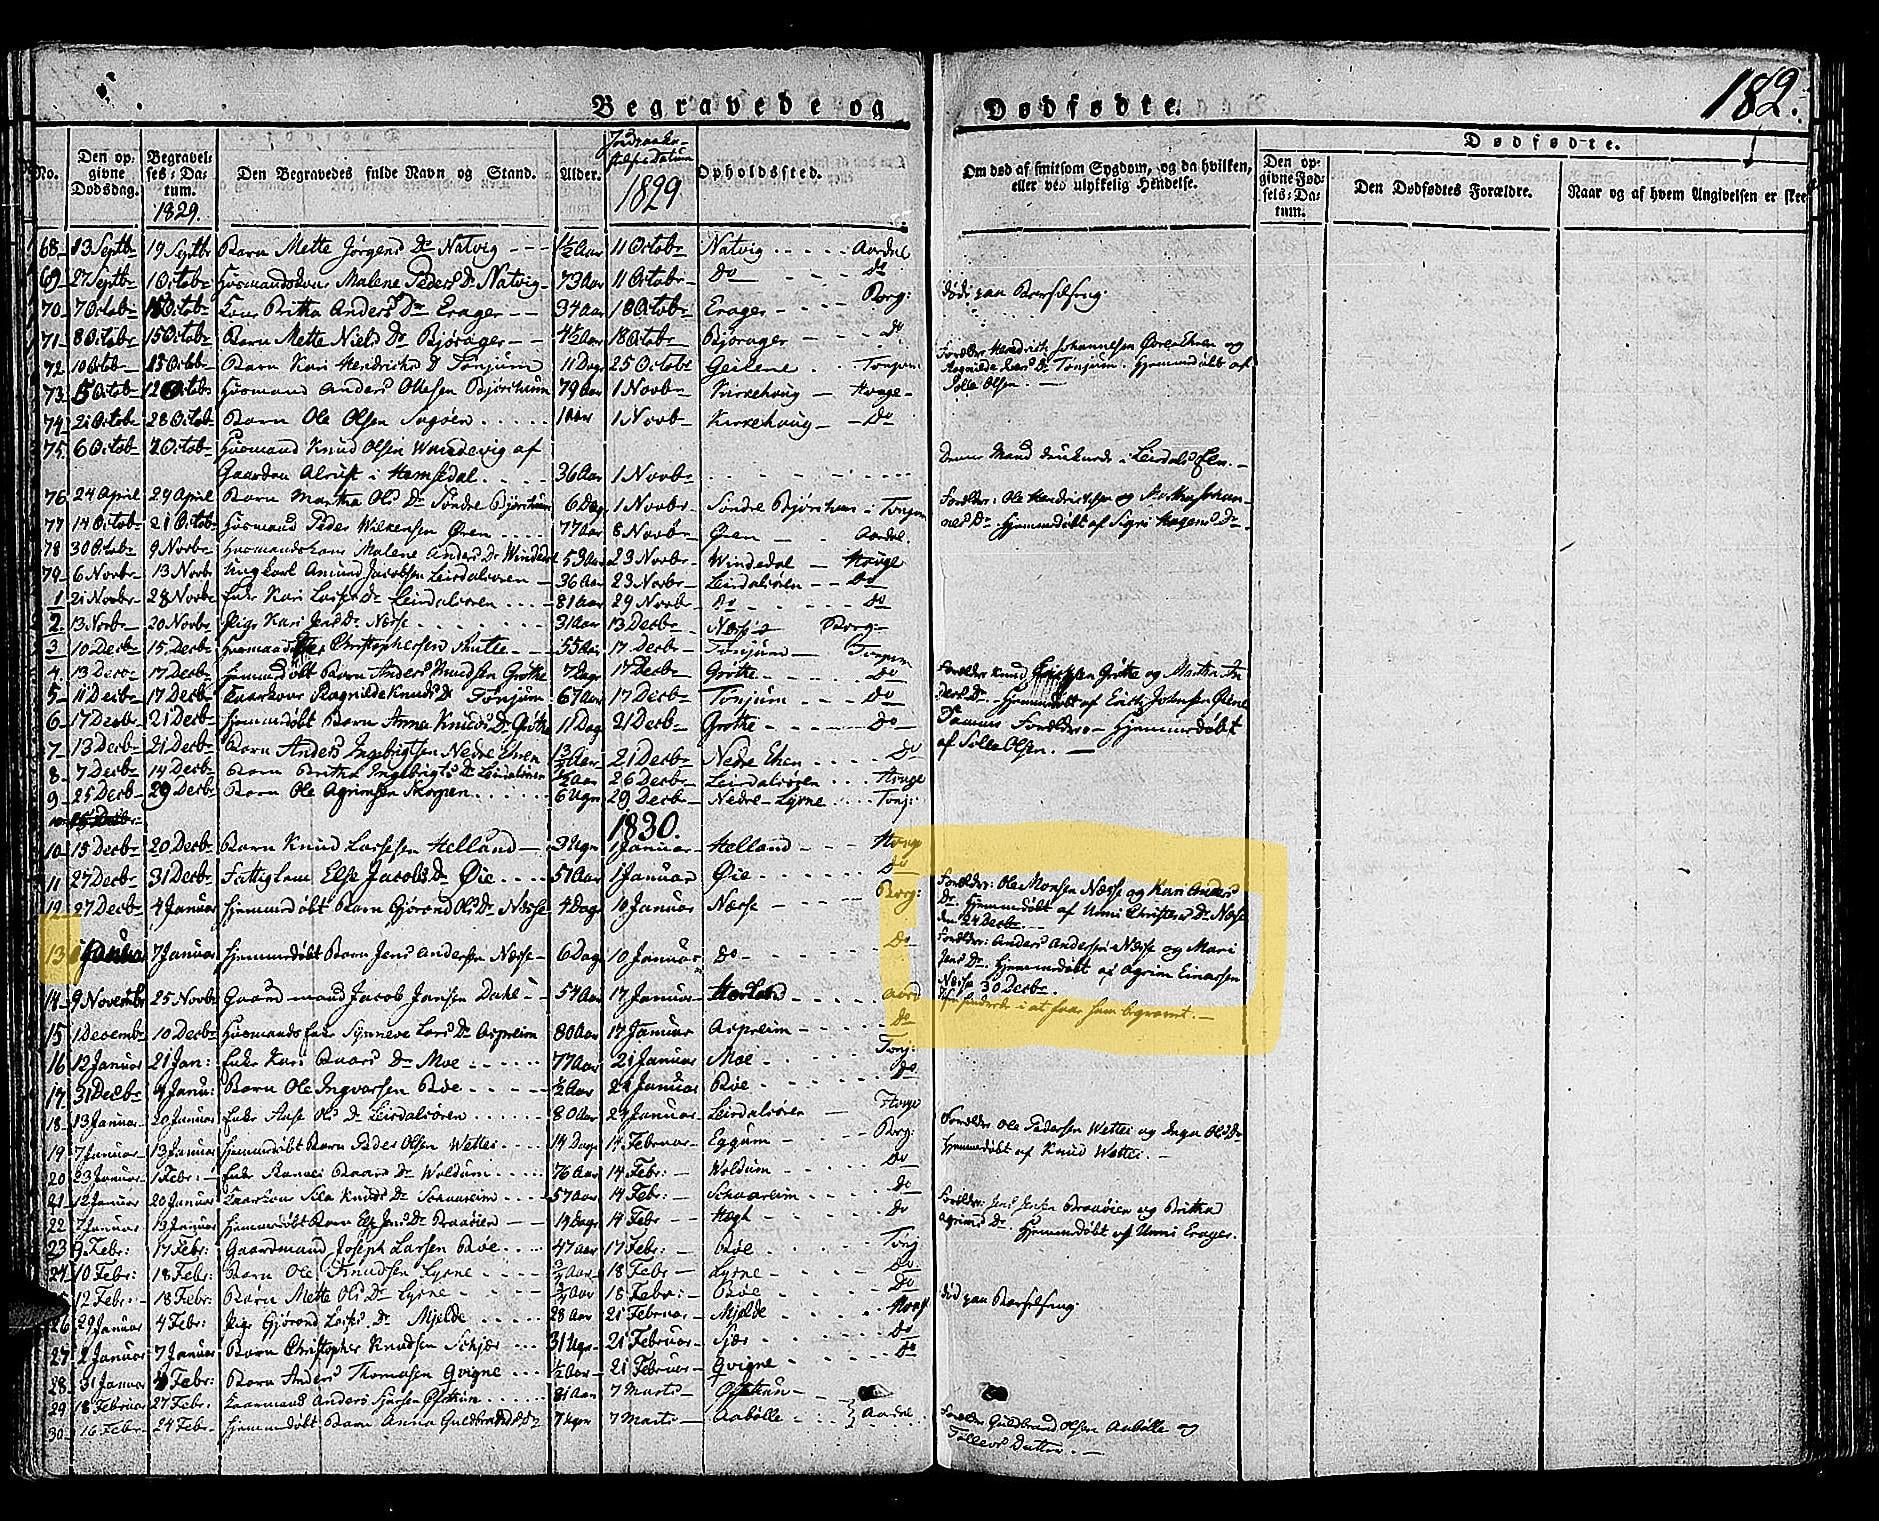 Begravede og Dødfødte.
182.
No. Den opgivne Dødsdag. Begravelses-Datum. 1829. Den Begravedes fulde Navn og Stand. Alder. Jordpaakastelses Datum 1829 Opholdssted. Om død af smitsom Sygdom, og da hvilken, eller ved ulykkelig Hændelse. Dødfødte.
Den opgivne Fødsels-Datum. Den Dødfødtes Forældre. Naar og af hvem Angivelsen er skee
68 13 Septb 19 Septbr Barn Mette Jørgens Dr Natvig 1½ Aar 11 Octobr Natvig Aardal
69 27 Septb 1 Octob Huusmandskone Malene Peders Dr Natvig 73 Aar 11 Octobr Do Do
70 7 Octob Octob Kone Britha Anders Dr Erager 34 Aar 18 Octobr Erager Borg: døde paa Barselseng.
71 8 Octobr 15 Octob Barn Mette Niels Dr Bjørager 4½ Aar 18 Octobr Bjørager Do
72 10 Octob 15 Octob Barn Kari Hendrichs D Tønjum 11 Dage 25 Octobr Geilene Tønjum Forældre Hendrich Johannesen og
Tønjum. Hjemmedøbt af
Olsen.
73 5 Octob 12 Octobr Huusmand Anders Olsen Bjørkum 79 Aar 1 Novbr Kirkehoug Houge
74 21 Octob 28 Octob Barn Ole Olsen 1 Aar 1 Novbr Kirkehoug Do
75 6 Octob 20 Octob Huusmand Knud Olsen af
Gaarden i Hemsedal 36 Aar 1 Novbr Denne Mand druknede i Leirdals Elv.
76 24 April 29 April Barn Martha Ols Dr Søndre Bjørkum 6 Dage 1 Novbr Søndre Bjørkum Tønjum Forældre: Ole Hendrichsen og Martha Johan-
nes Dr. Hjemmedøbt af Sigri Hagens Dr.
77 14 Octob 21 Octob Huusmand Peder Wilkensen Øren 77 Aar 8 Novbr Øren Aardal.
78 30 Octob 9 Novbr Huusmandskone Malene Anders Dr Windedal 53 Aar 23 Novbr Windedal Houge
79 6 Novbr 13 Novbr Ungkarl Amund Jacobsen Leirdalsøren 36 Aar 23 Novbr Leirdalsøren Do
1 21 Novbr 28 Novbr Enke Kari Lars Dr Leirdalsøren 81 Aar 29 Novb Do Do
2 13 Novb 20 Novbr Pige Kari Jens Dr Næsse 31 Aar 13 Decbr Næsse Borg
3 10 Decb 15 Decbr Huusmand Christophersen 55 Aar 17 Decbr Tønjum Tønjum
4 13 Decb 17 Decbr Hjemmedøbt Barn Anders Knudsen Grøthe 7 Dage 17 Decbr Grøthe Do Forældre Knud Grøthe og Martha An-
ders Dr. Hjemmedøbt af Erich Johnsen
5 11 Decbr 17 Decbr Kaarkone Ragnilde Knuds D Tønjum 67 Aar 17 Decbr Tønjum Do
6 17 Decbr 21 Decbr Hjemmedøbt Barn Anna Knuds Dr Grøthe 11 Dag 21 Decbr Grøthe Do Samme Forældre. Hjemmedøbt
af Olsen.
7 13 Decbr 21 Decbr Barn Anders Ingebrigtsen Nedre Ehren Aar 21 Decbr Nedre Ehren Do
8 7 Decbr 14 Decbr Barn Britha Ingebrigts Dr Leirdalsøren Aar 26 Decbr Leirdalsøren Houge
9 25 Decb 29 Decbr Barn Ole Agrimsen Skorpen 6 Ugr 29 Decbr Nedre Lysne Tønj:
1830.
10 15 Decbr 20 Decbr Barn Knud Larsen Helland 3 Ugr 1 Januar Helland Houge
11 27 Decbr 31 Decbr Fattiglem Else Jacobs Dr Øie 51 Aar 1 Januar Øie Do
12 27 Decbr 4 Januar Hjemmedøbt Barn Gjørond Ols Dr Næsse 4 Dage 10 Januar Næsse Borg: Forældre: Ole Monsen Næsse og Kari Anders
Dr. Hjemmedøbt af Unni Christens Dr Næsse
den 24 Decbr
13 Januar 7 Januar Hjemmedøbt Barn Jens Andersen Næsse 6 Dage 10 Januar Do Do Forældre: Anders Andersen Næsse og Mari
Jens Dr. Hjemmedøbt af Agrim Einarsen
Næsse 30 Decbr.
14 9 Novembr 25 Novbr Gaardmand Jacob Jansen Dahle 54 Aar 17 Januar Aard hindrede i at faae ham begravet.
15 1 Decembr 10 Decbr Huusmands Enke Synneve Lars Dr Aspreim 80 Aar 17 Januar Aspreim Do
16 12 Januar 21 Jan: Enke Kari Baars Dr Moe 77 Aar 21 Januar Moe Tønj:
17 31 Decbr 4 Janu: Barn Ole Ingvarsen Røe ½ Aar 24 Januar Røe Do
18 13 Januar 20 Januar Enke Ols Dr Leirdalsøren 80 Aar 24 Januar Leirdalsøren Houge
19 7 Januar 13 Januar Hjemmedøbt Barn Peder Olsen Wettei 14 Dage 14 Februar Eggum Borg: Forældre Ole Pedersen Wettei og Inga Ols Dr
Hjemmedøbt af Knud Wettei.
20 23 Januar 1 Febr: Enke Baars Dr Woldum 76 Aar 14 Febr: Woldum Do
21 12 Januar 20 Januar Kaarkone Sila Knuds Dr Schaareim 57 Aar 14 Febr: Schaareim Do
22 7 Januar 13 Januar Hjemmedøbt Barn Jens Dr 14 Dage 14 Febr Hægh Do Forældre: Jens Jensen og Britha
Agrims Dr. Hjemmedøbt af Unni Erager.
23 9 Febr: 17 Febr: Gaardmand Joseph Larsen Røe 47 Aar 17 Febr: Røe Tønj
24 10 Febr: 18 Febr: Barn Ole Knudsen Lysne Aar 18 Febr Lysne Do
12 Febr: 18 Febr: Barn Mette Ols Dr Lysne Aar 18 Febr: Røe Do
26 29 Januar 4 Febr: Pige Gjørond Dr Mjelde 28 Aar 21 Februar Mjelde Houg død paa Barselseng.
27 2 Januar 7 Januar Barn Christopher Knudsen 31 Ugr 21 Februar Do
28 31 Januar Febr: Barn Anders Thomasen Qvigne ½ Aar 21 Februar Qvigne Do
29 18 Februar 27 Febr. Kaarmand Anders 81 Aar 7 Marts
30 16 Febr 24 Febr Hjemmedøbt Barn Anna Guldbrands Dr 7 Ugr 7 Marts Aabølle Aardal Forældre Guldbrand Olsen Aabølle og
Datter.